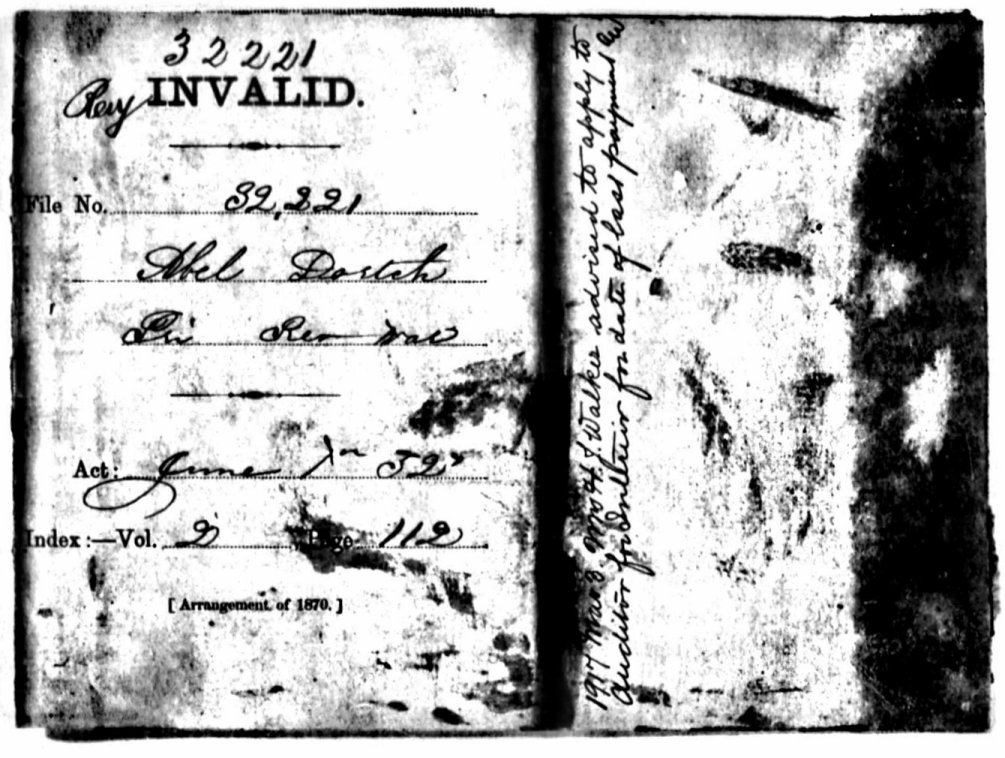 32221
Rev INVALID.
File No. 32,221
Abel Dortch
Pri Rev War
Act: June 7th 32
Index:—Vol. D Page 112
[Arrangement of 1870.]
1917 Mar 3. Mrs H. J. Walker advised to apply to
Auditor for Interior for date of last payment &c